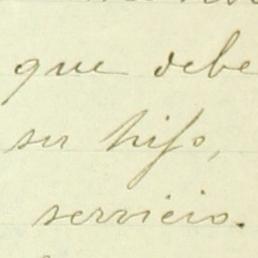 que debe
ser hijo,
servicio.